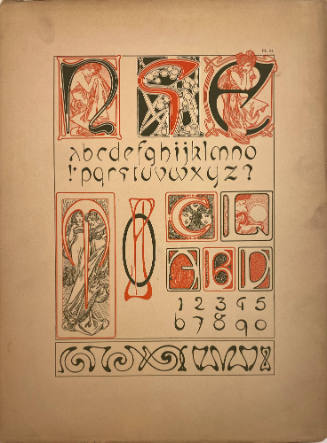 E
abcdefghijklmno
!pqrstuvwxyz?
O C
A B D
1 2 3 4 5
6 7 8 9 0